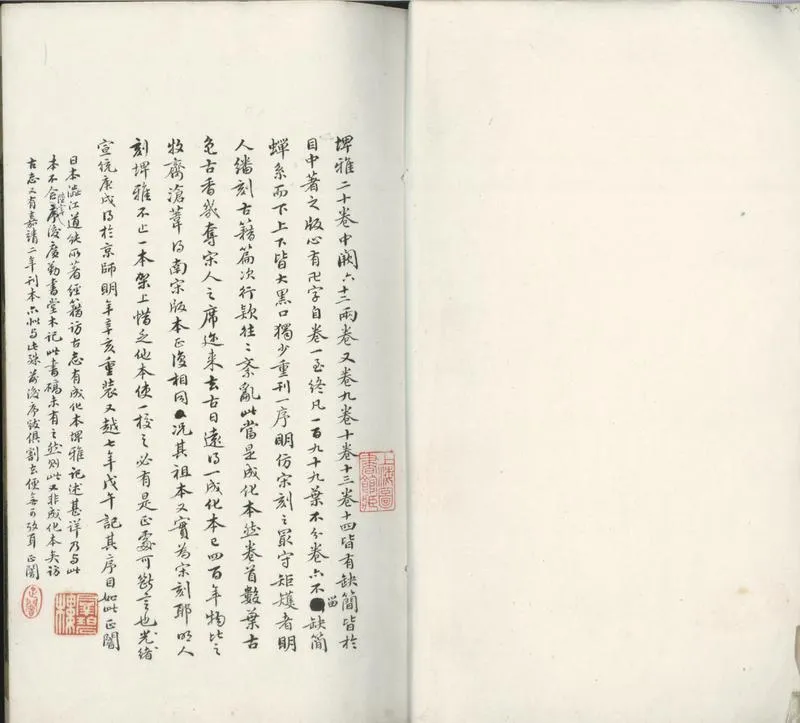 埤雅二十卷中闕六十二兩卷又卷九卷十卷十三卷十四皆有缺簡皆於
目中著之版心有卍字自卷一至終凡一百九十九葉不分卷亦不留缺簡
蟬系而下上下皆大黑口獨少重刊一序明仿宋刻之最守矩矱者明
人繙刻古籍篇次行款往〻紊亂此當是成化本然卷首數葉古
色古香幾奪宋人之席迩来去古日遠得一成化本已四百年物比之
牧齋滄葦得南宋版本正復相同况其祖本又實為宋刻耶明人
刻埤雅不止一本架上惜乏他本使一校之必有是正處可斷言也光緒
宣統庚戌得於京師明年辛亥重裝又越七年戊午記其序目如此正闇
日本澁江道純所著經籍訪古志有成化本埤雅記述甚詳乃与此
本不合陸宰序後廣勤書堂木記此書未有之然則此又非成化本矣訪
古志又有嘉靖二年刊本亦与此殊前後序跋俱割去便無可攷耳正闇
群碧樓
正闇
上海圖書館藏